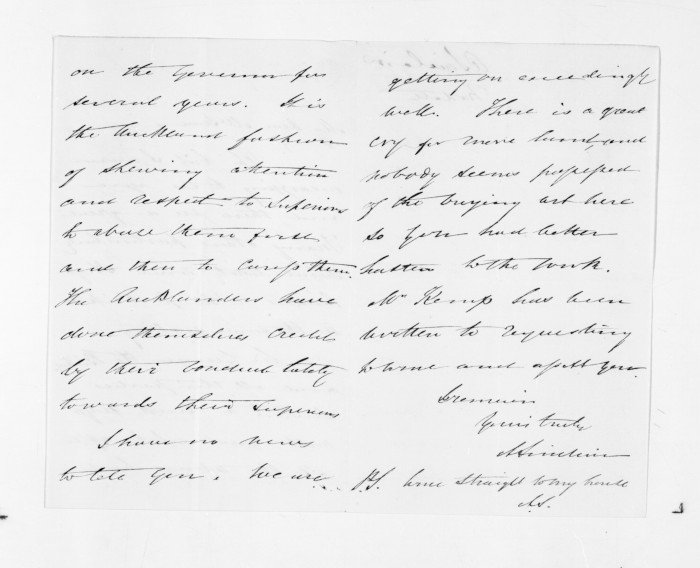 on the Governor for
several years. It is
the Auckland fashion
of shewing attention
and respect to Superiors
to abuse them first
and then to caress them.
The Aucklanders have
done themselves credit
by their conduct lately
towards their Superiors
I have no news
to tell you. We are
getting on exceedingly
well. There is a great
cry for more land and
nobody seems possessed
of the buying art here
so you had better
hasten to the work.
Mr Kemp has been
written to requesting
to come and assist you.
I remain
Yours truly
A Sinclair
P.S. Come straight to my house
A.S.